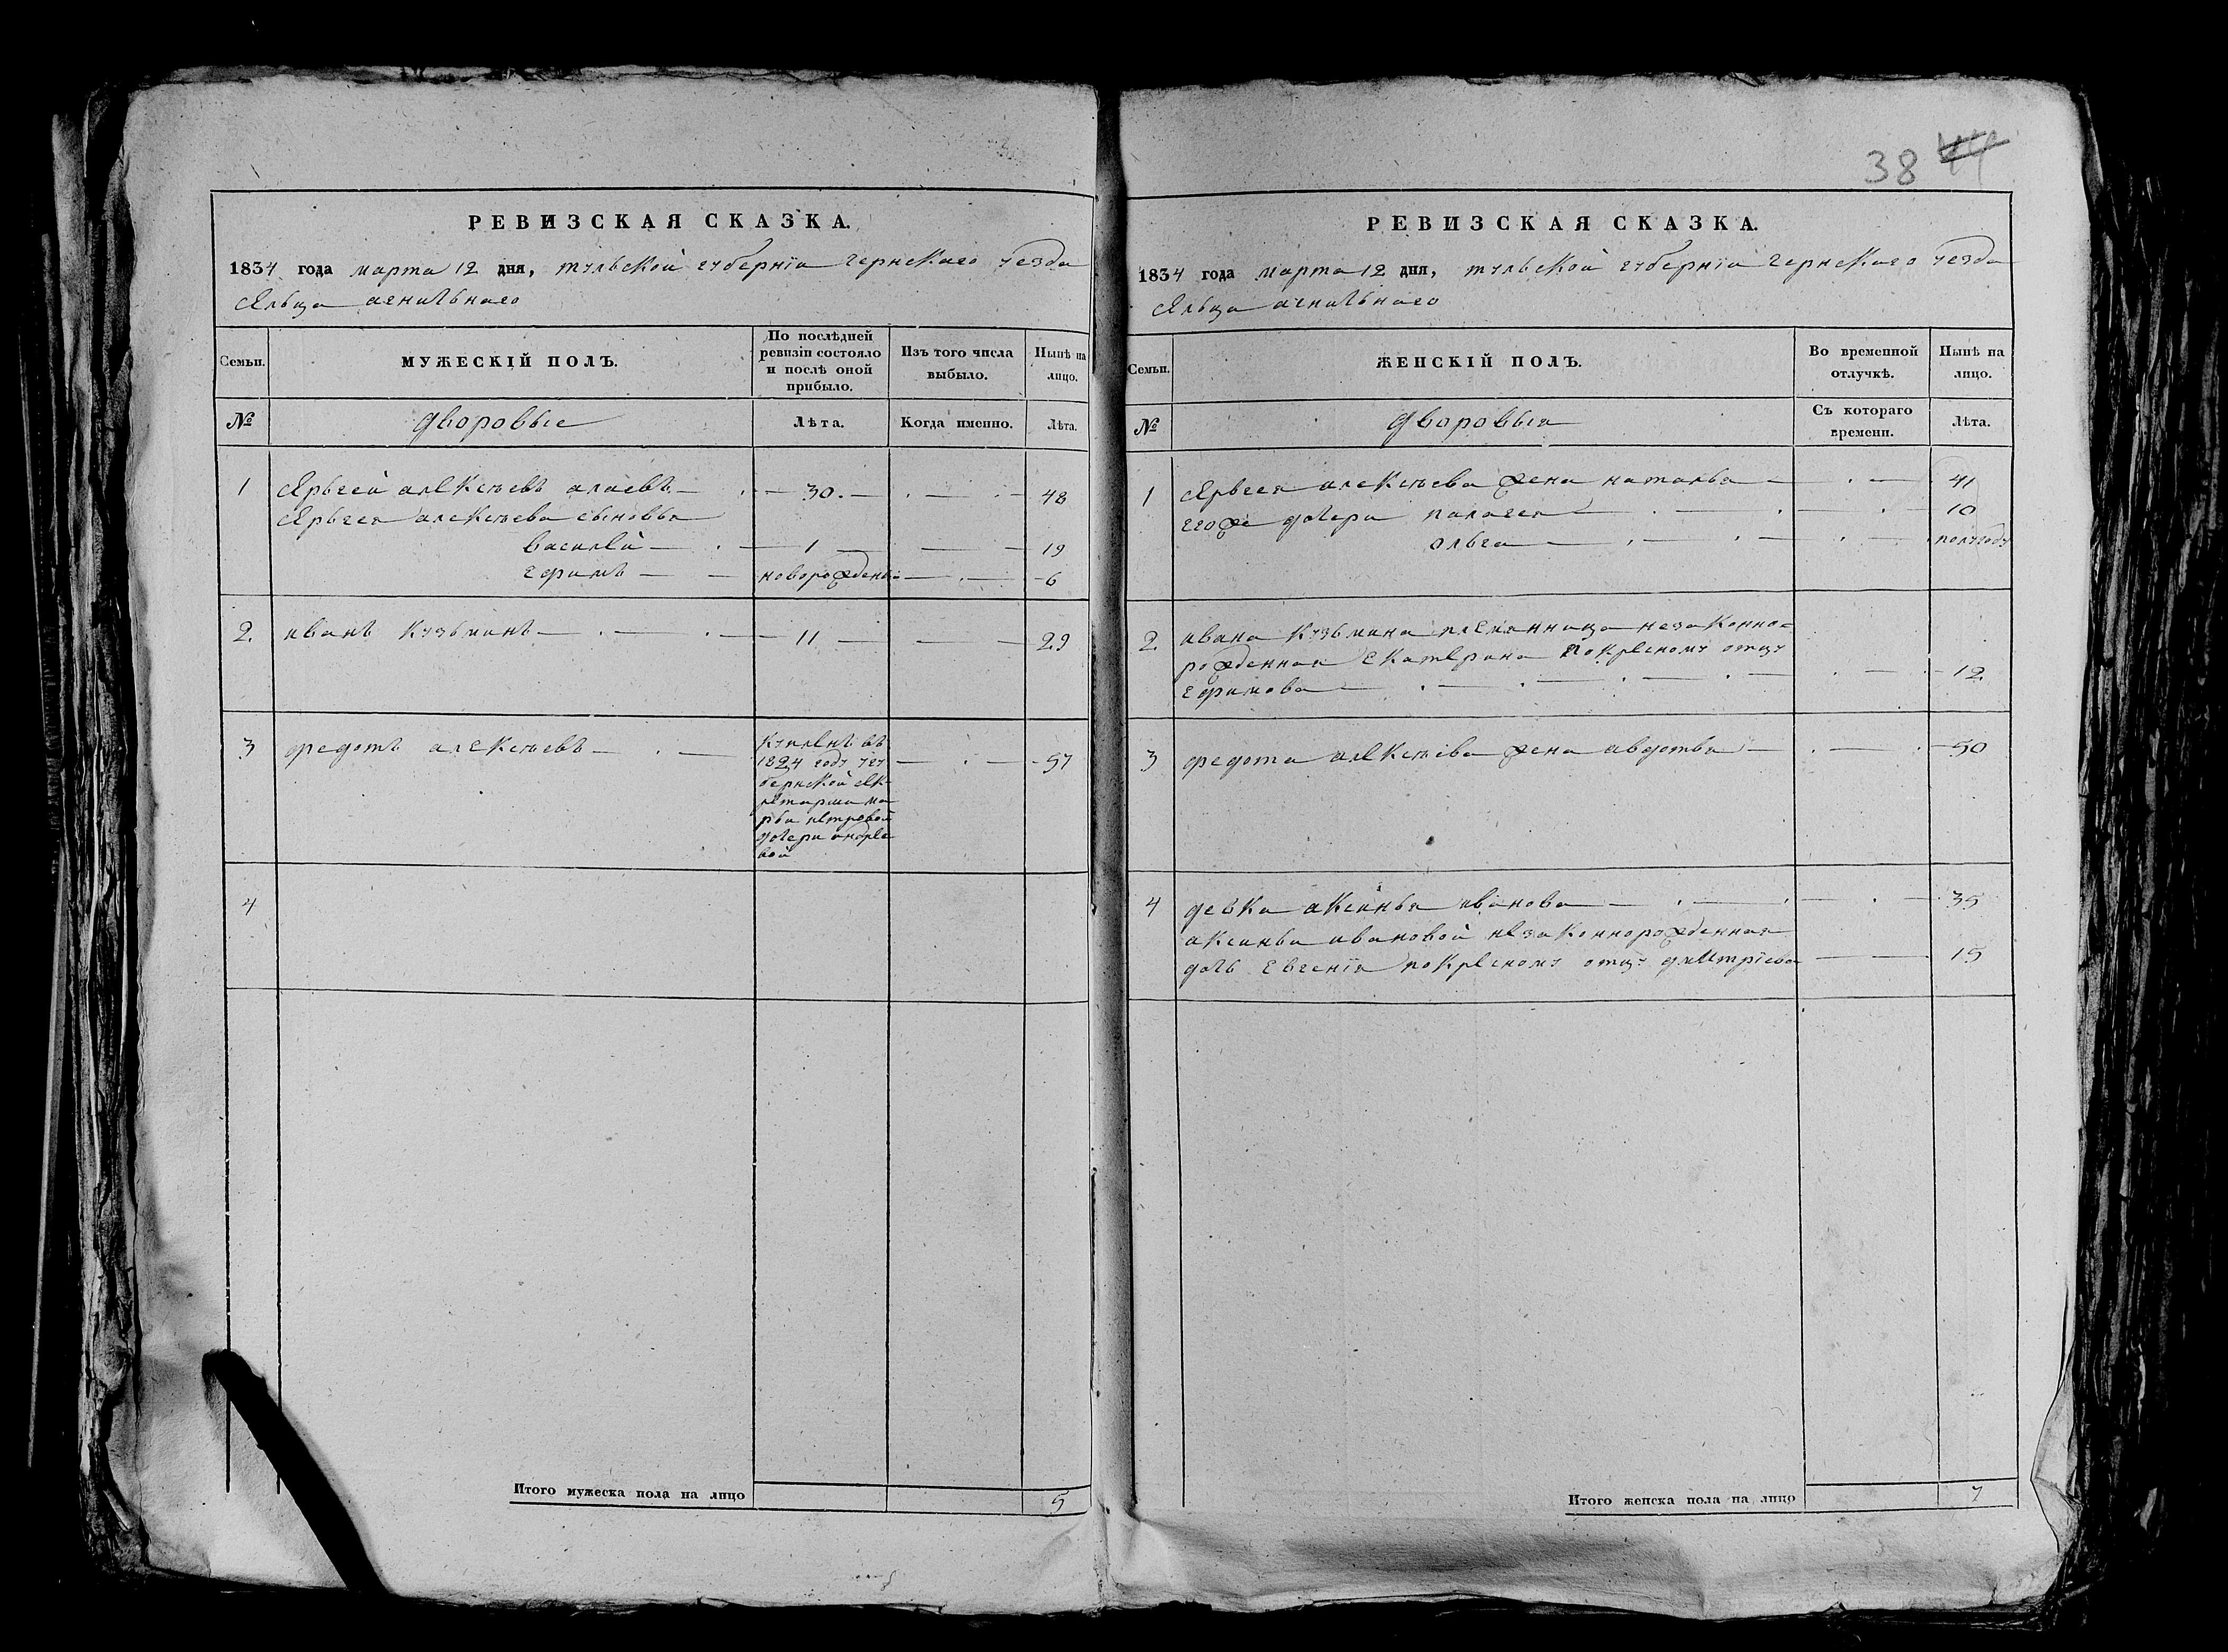 38 44
РЕВИЗСКАЯ СКАЗКА.
1834 года марта 12 дня, тульской губернїи чернскаго уезда
сельца
Семьи.
МУЖЕСКІЙ ПОЛЪ.
По послѣдней ревизіи состояло и послѣ оной прибыло.
Изъ того числа выбыло.
Нынѣ на лицо.
№
дворовые
Лѣта.
Когда именно.
Лѣта.
1 Сергей алексѣевъ — 30. — 48
Сергея алексѣева сыновья
василей — 1 — 19
ефимъ — новорожденъ — 6
2. иванъ кузьминъ — 11 — 29
3 федотъ алексѣевъ — 57
купленъ въ
1824 году у гу
бернской сек
ретарши ма
рьи петровой
дочери андрее
вой
4
Итого мужеска пола на лицо 5
РЕВИЗСКАЯ СКАЗКА.
1834 года марта 12 дня, тульской губернїи чернскаго уезда
сельца
Семьи.
ЖЕНСКІЙ ПОЛЪ.
Во временной отлучкѣ.
Нынѣ на лицо.
№
дворовыя
Съ котораго времени.
Лѣта.
1 Сергея алексѣева жена наталья — 41
его же дочери палагея — 10
ольга — полугоду
2. ивана кузьмина племянница незаконно=
рожденная екатерина покресному отцу
ефимова — 12
3 федота алексѣева жена авдотья — 50
4 девка аксинья иванова — 35
аксиньи ивановой незаконнорожденная
дочь евгенїя покресному отцу дмитрїева — 15
Итого женска пола на лицо 7